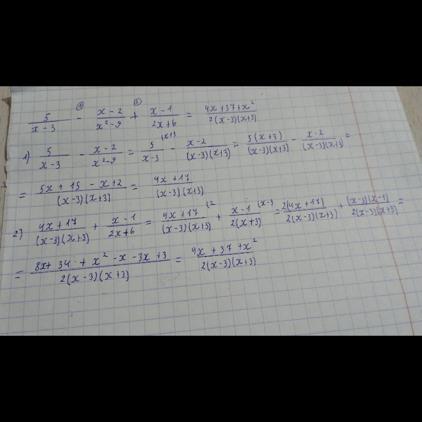 5/(x-3) - ① (x-2)/(x²-9) + ② (x-1)/(2x+6) = (4x+37+x²)/(2(x-3)(x+3))
1) 5/(x-3) - (x-2)/(x²-9) = 5/(x-3) (x+3 - (x-2)/((x-3)(x+3)) = 5(x+3)/((x-3)(x+3)) - (x-2)/((x-3)(x+3)) =
= (5x+15-x+2)/((x-3)(x+3)) = (4x+17)/((x-3)(x+3))
2) (4x+17)/((x-3)(x+3)) + (x-1)/(2x+6) = (4x+17)/((x-3)(x+3)) (2 + (x-1)/(2(x+3)) (x-3 = 2(4x+17)/(2(x-3)(x+3)) + (x-3)(x-1)/(2(x-3)(x+3)) =
= (8x+34+x²-x-3x+3)/(2(x-3)(x+3)) = (4x+37+x²)/(2(x-3)(x+3))